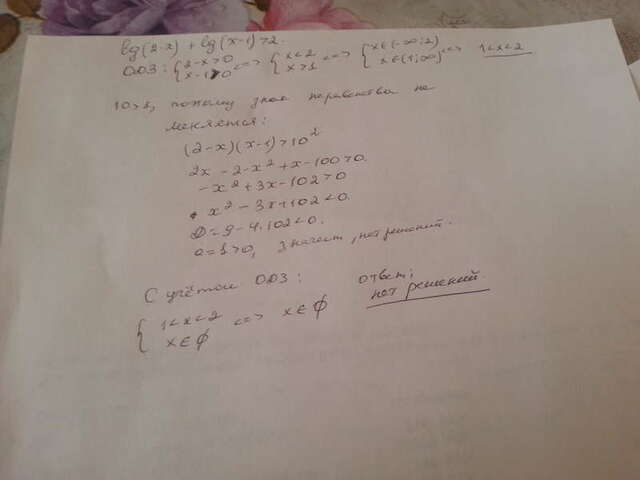 lg(2-x) + lg(x-1) > 2.
ОДЗ: { 2-x>0 x-1>0 <=> { x<2 x>1 <=> { x∈(-∞;2) x∈(1;∞) <=> 1<x<2
10>1, поэтому знак неравенства не
меняется:
(2-x)(x-1)>10²
2x - 2 - x² + x - 100 > 0.
-x² + 3x - 102 > 0
x² - 3x + 102 < 0.
D = 9 - 4·102 < 0.
a = 1 > 0, значит, нет решений.
С учётом ОДЗ:
{ 1<x<2 x∈∅ <=> x∈∅
ответ:
нет решений.